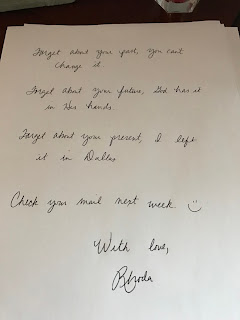 Forget about your past, you can't
change it.
Forget about your future, God has it
in His hands.
Forget about your present, I left
it in Dallas
Check your mail next week. :)
With love,
Rhoda